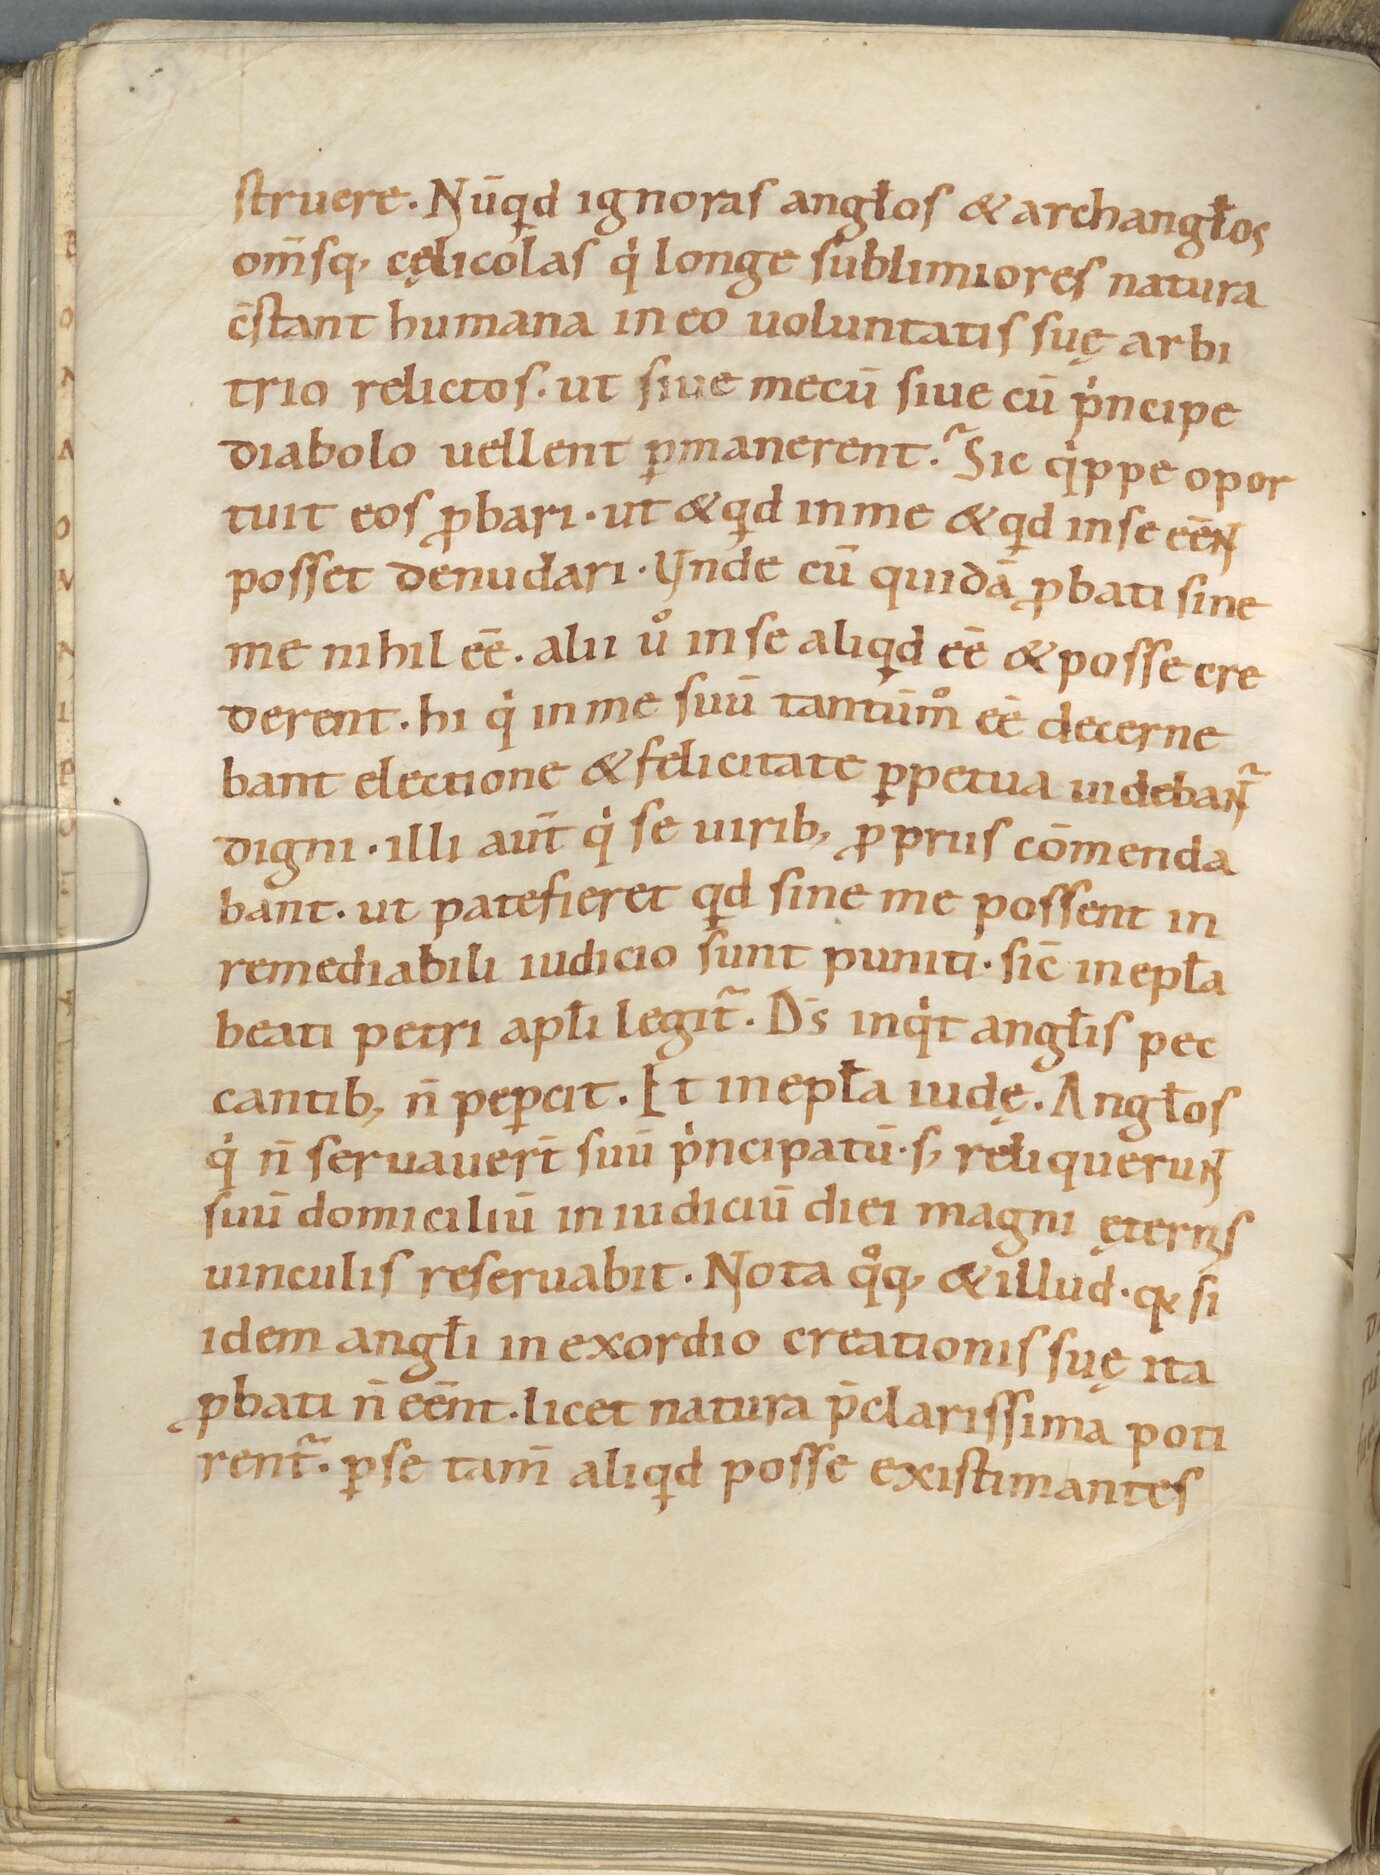 struere. Nūqd ignoras angłos & archangłos
om̄sq, cęlicolas q̇ longe sublimiores natura
c̄stant humana in eo uoluntatis suę arbi
trio relictos. ut siue mecū siue cū ṗncipe
diabolo uellent ꝑmanerent. Sic q̇ppe opor
tuit eos ꝓbari. ut & qd in me & qd in se eēN
posset denudari. Vnde cū quidā ꝓbati sine
me nihil eē. alii uͦ in se aliqd eē & posse cre
derent. hi q̇ in me suū tantūmͦ eē decerne
bant electione & felicitate ꝑpetua uidebaNt᷑
digni. illi aut̄ q̇ se uirib, ꝓpriis cōmenda
bant. ut patefieret qd sine me possent in
remediabili iudicio sunt puniti. sic̄ in epła
beati petri apłi legit᷑. D̄s inq̇t angłis pec
cantib, n̄ peꝑcit. Et in epła iudę. Angłos
q̇ n̄ seruauer̄t suū ṗncipatū. s, reliqueruN
suū domiciliū in iudiciū diei magni ęternis
uinculis reseruabit. Nota qͦq, & illud. qꝫ si
idem angłi in exordio creationis suę ita
ꝓbati n̄ eēnt. licet natura p̄clarissima poti
rent᷑. ꝑ se tam̄ aliqd posse existimantes